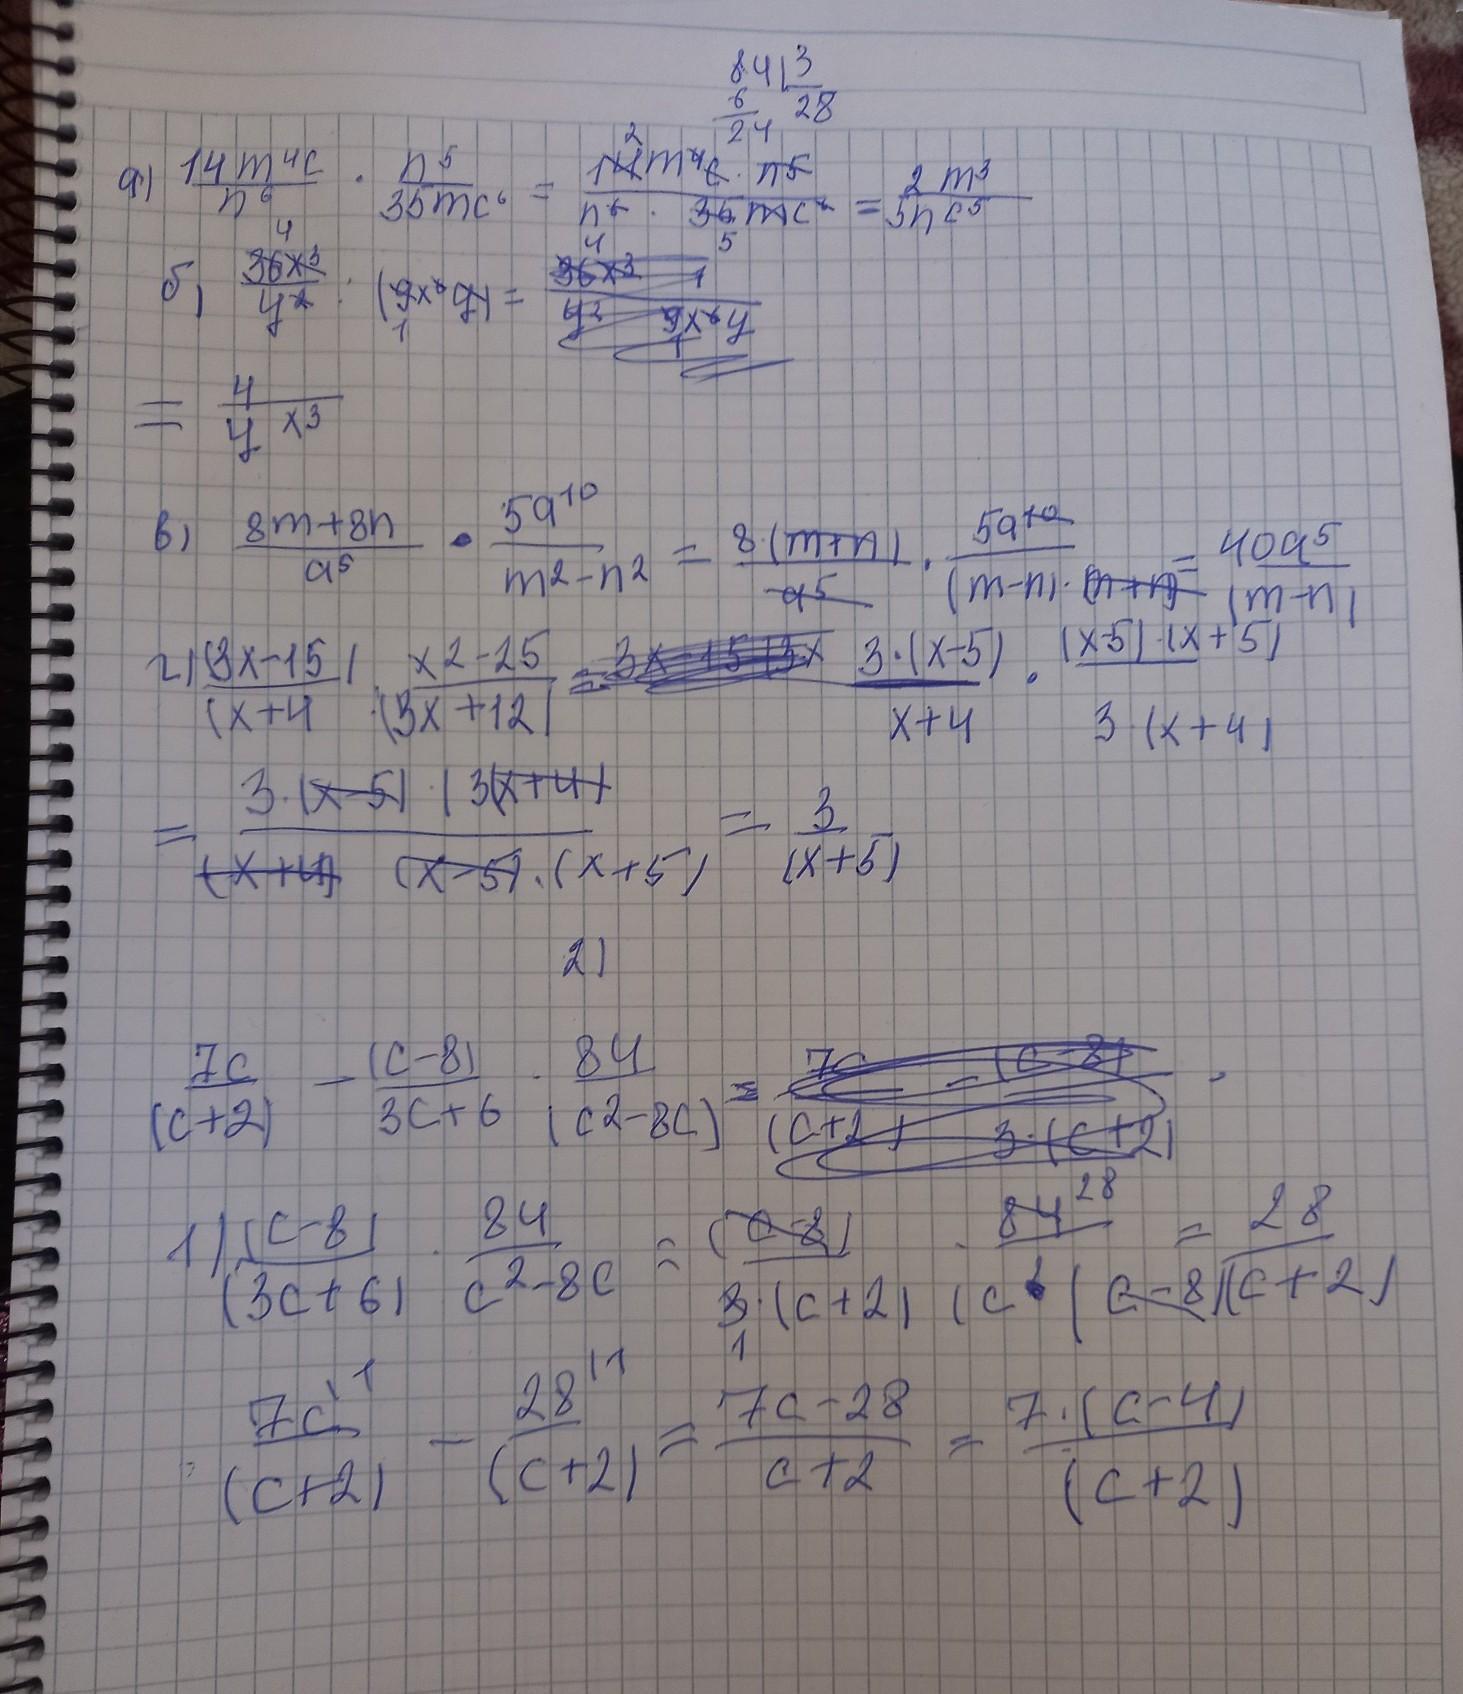 84 | 3
6 28
24
а) 14m⁴c/n⁶ · n⁵/35mc⁶ = 14m⁴c · n⁵/n⁶ · 35mc⁶ = 2m³/5nc⁵
б) 36x³/y² : (9x⁶y) = 36x³ 1/y² 9x⁶y
= 4/y x³
в) 8m+8n/a⁵ · 5a¹⁰/m²-n² = 8·(m+n)/a⁵ · 5a¹⁰/(m-n)·(m+n) = 40a⁵/(m-n)
г) (3x-15)/(x+4 · x²-25/(3x+12) = 3·(x-5)/x+4 · (x-5)·(x+5)/3·(x+4)
= 3·(x-5)·(3(x+4)/(x+4) (x-5)·(x+5) = 3/(x+5)
2)
7c/(c+2) - (c-8)/3c+6 · 84/(c²-8c) = 7c/(c+2) - (c-8)/3·(c+2) ·
1) (c-8)/(3c+6) · 84/c²-8c = (c-8)/3·(c+2) · 84 28/(c (c-8) = 28/(c+2)
1
7c/(c+2) - 28/(c+2) = 7c-28/c+2 = 7·(c-4)/(c+2)